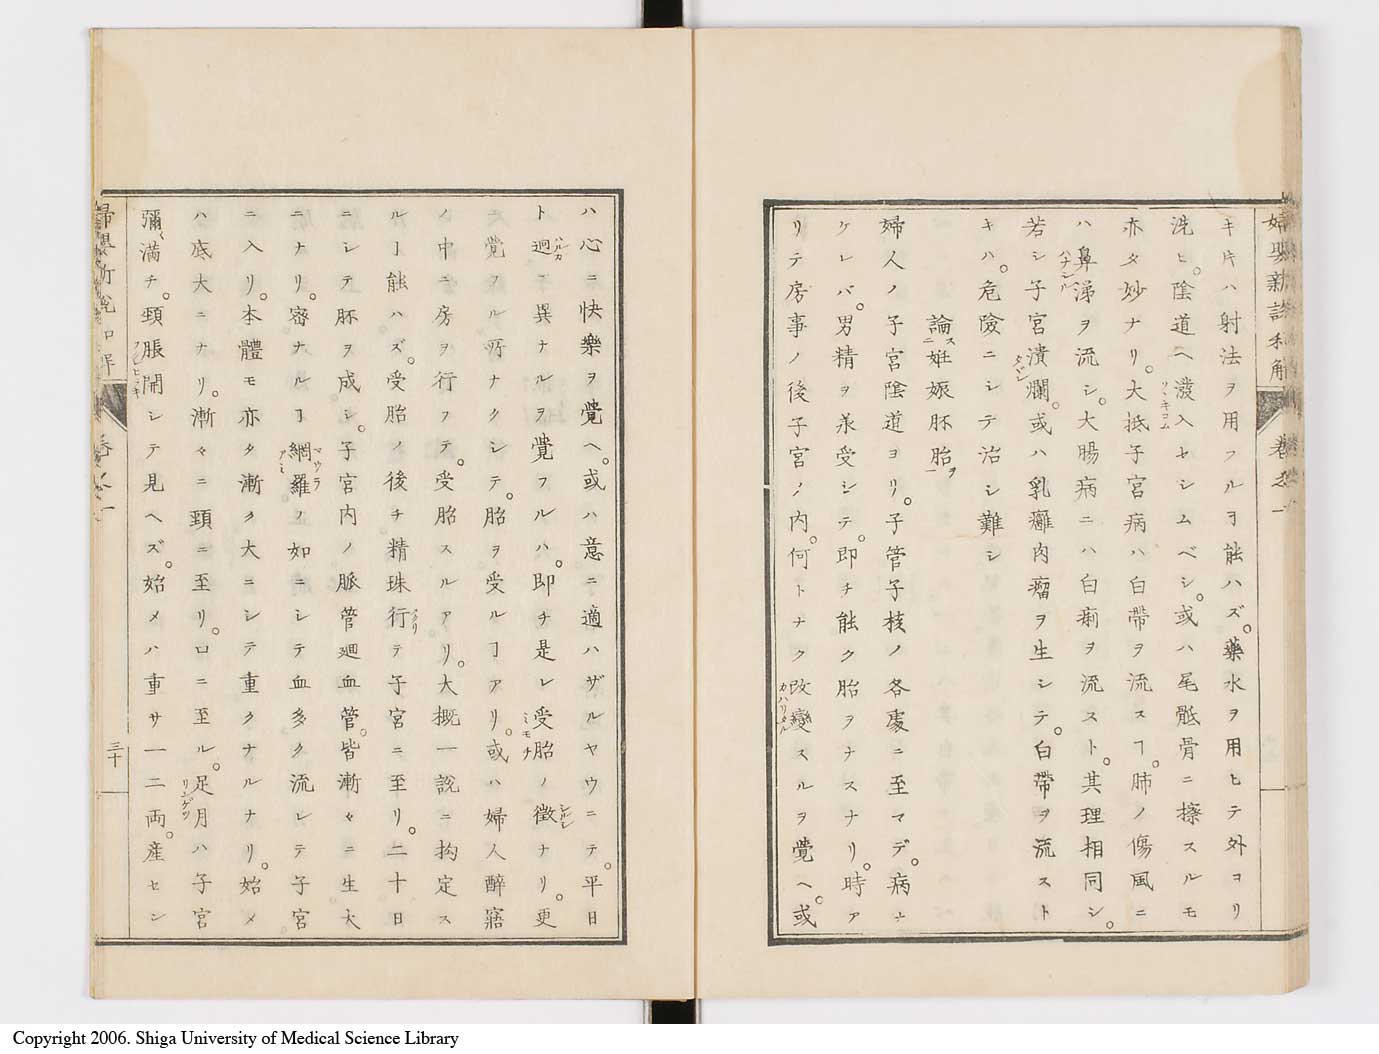 キ片ハ射法ヲ用フルヿ能ハズ。藥水ヲ用ヒテ外ヨリ
洗ヒ。陰道ヘ潑入セシムベシ。或ハ尾骶骨ニ擦スルモ
亦タ妙ナリ。大抵子宮病ハ白帶ヲ流スヿ。肺ノ傷風ニ
ハ鼻涕ヲ流シ。大腸病ニハ白痢ヲ流スト。其理相同シ。
若シ子宮潰爛。或ハ乳癰肉瘤ヲ生シテ。白帶ヲ流スト
キハ。危險ニシテ治シ難シ
論ニス妊娠胚胎ヲ一
婦人ノ子宮陰道ヨリ。子管子核ノ各處ニ至マデ。病ナ
ケレバ。男精ヲ承受シテ。即チ能ク胎ヲナスナリ。時ア
リテ房事ノ後子宮ノ内。何トナク改變スルヲ覺ヘ。或
ハ心ニ快樂ヲ覺ヘ。或ハ意ニ適ハザルヤウニテ。平日
ト迥異ナルヲ覺フルハ。即チ是レ受胎ノ徴ナリ。更
ニ覺フル所ナクシテ。胎ヲ受ルヿアリ。或ハ婦人醉寤
ノ中ニ房ヲ行フテ。受胎スルアリ。大概一説ニ拘定ス
ルヿ能ハズ。受胎ノ後チ精珠行テ子宮ニ至リ。二十日
ニシテ胚ヲ成シ。子宮内ノ脈管廻血管。皆漸々ニ生大
ニナリ。密ナルヿ網羅ノ如ニシテ血多ク流レテ子宮
ニ入リ。本體モ亦タ漸ク大ニシテ重クナルナリ。始メ
ハ底大ニナリ。漸々ニ頸ニ至リ。口ニ至ル。足月ハ子宮
彌滿チ。頸脹開シテ見ヘズ。始メハ重サ一二両。産セン
三十
Copyright 2006. Shiga University of Medical Science Library